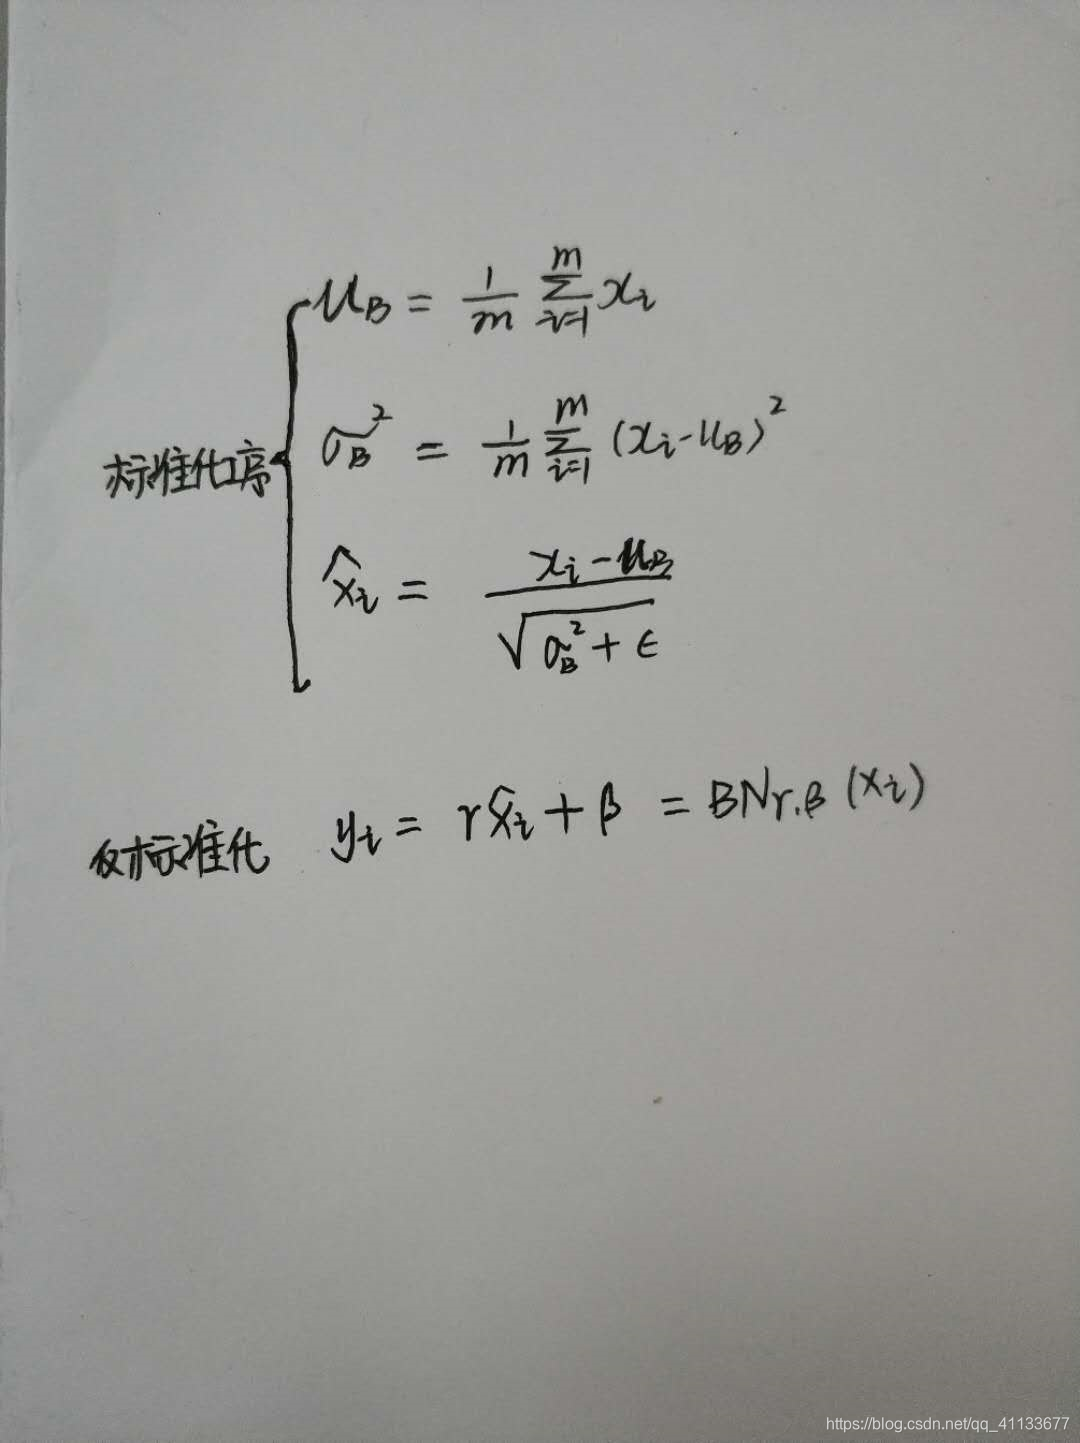 μ_B = \frac{1}{m} \sum_{i=1}^{m} x_i
σ_B^2 = \frac{1}{m} \sum_{i=1}^{m} (x_i - μ_B)^2
标准化工序
\hat{x}_i = \frac{x_i - μ_B}{\sqrt{σ_B^2 + ϵ}}
反标准化 y_i = γ\hat{x}_i + β = BN_{γ,β}(x_i)
https://blog.csdn.net/qq_41133677